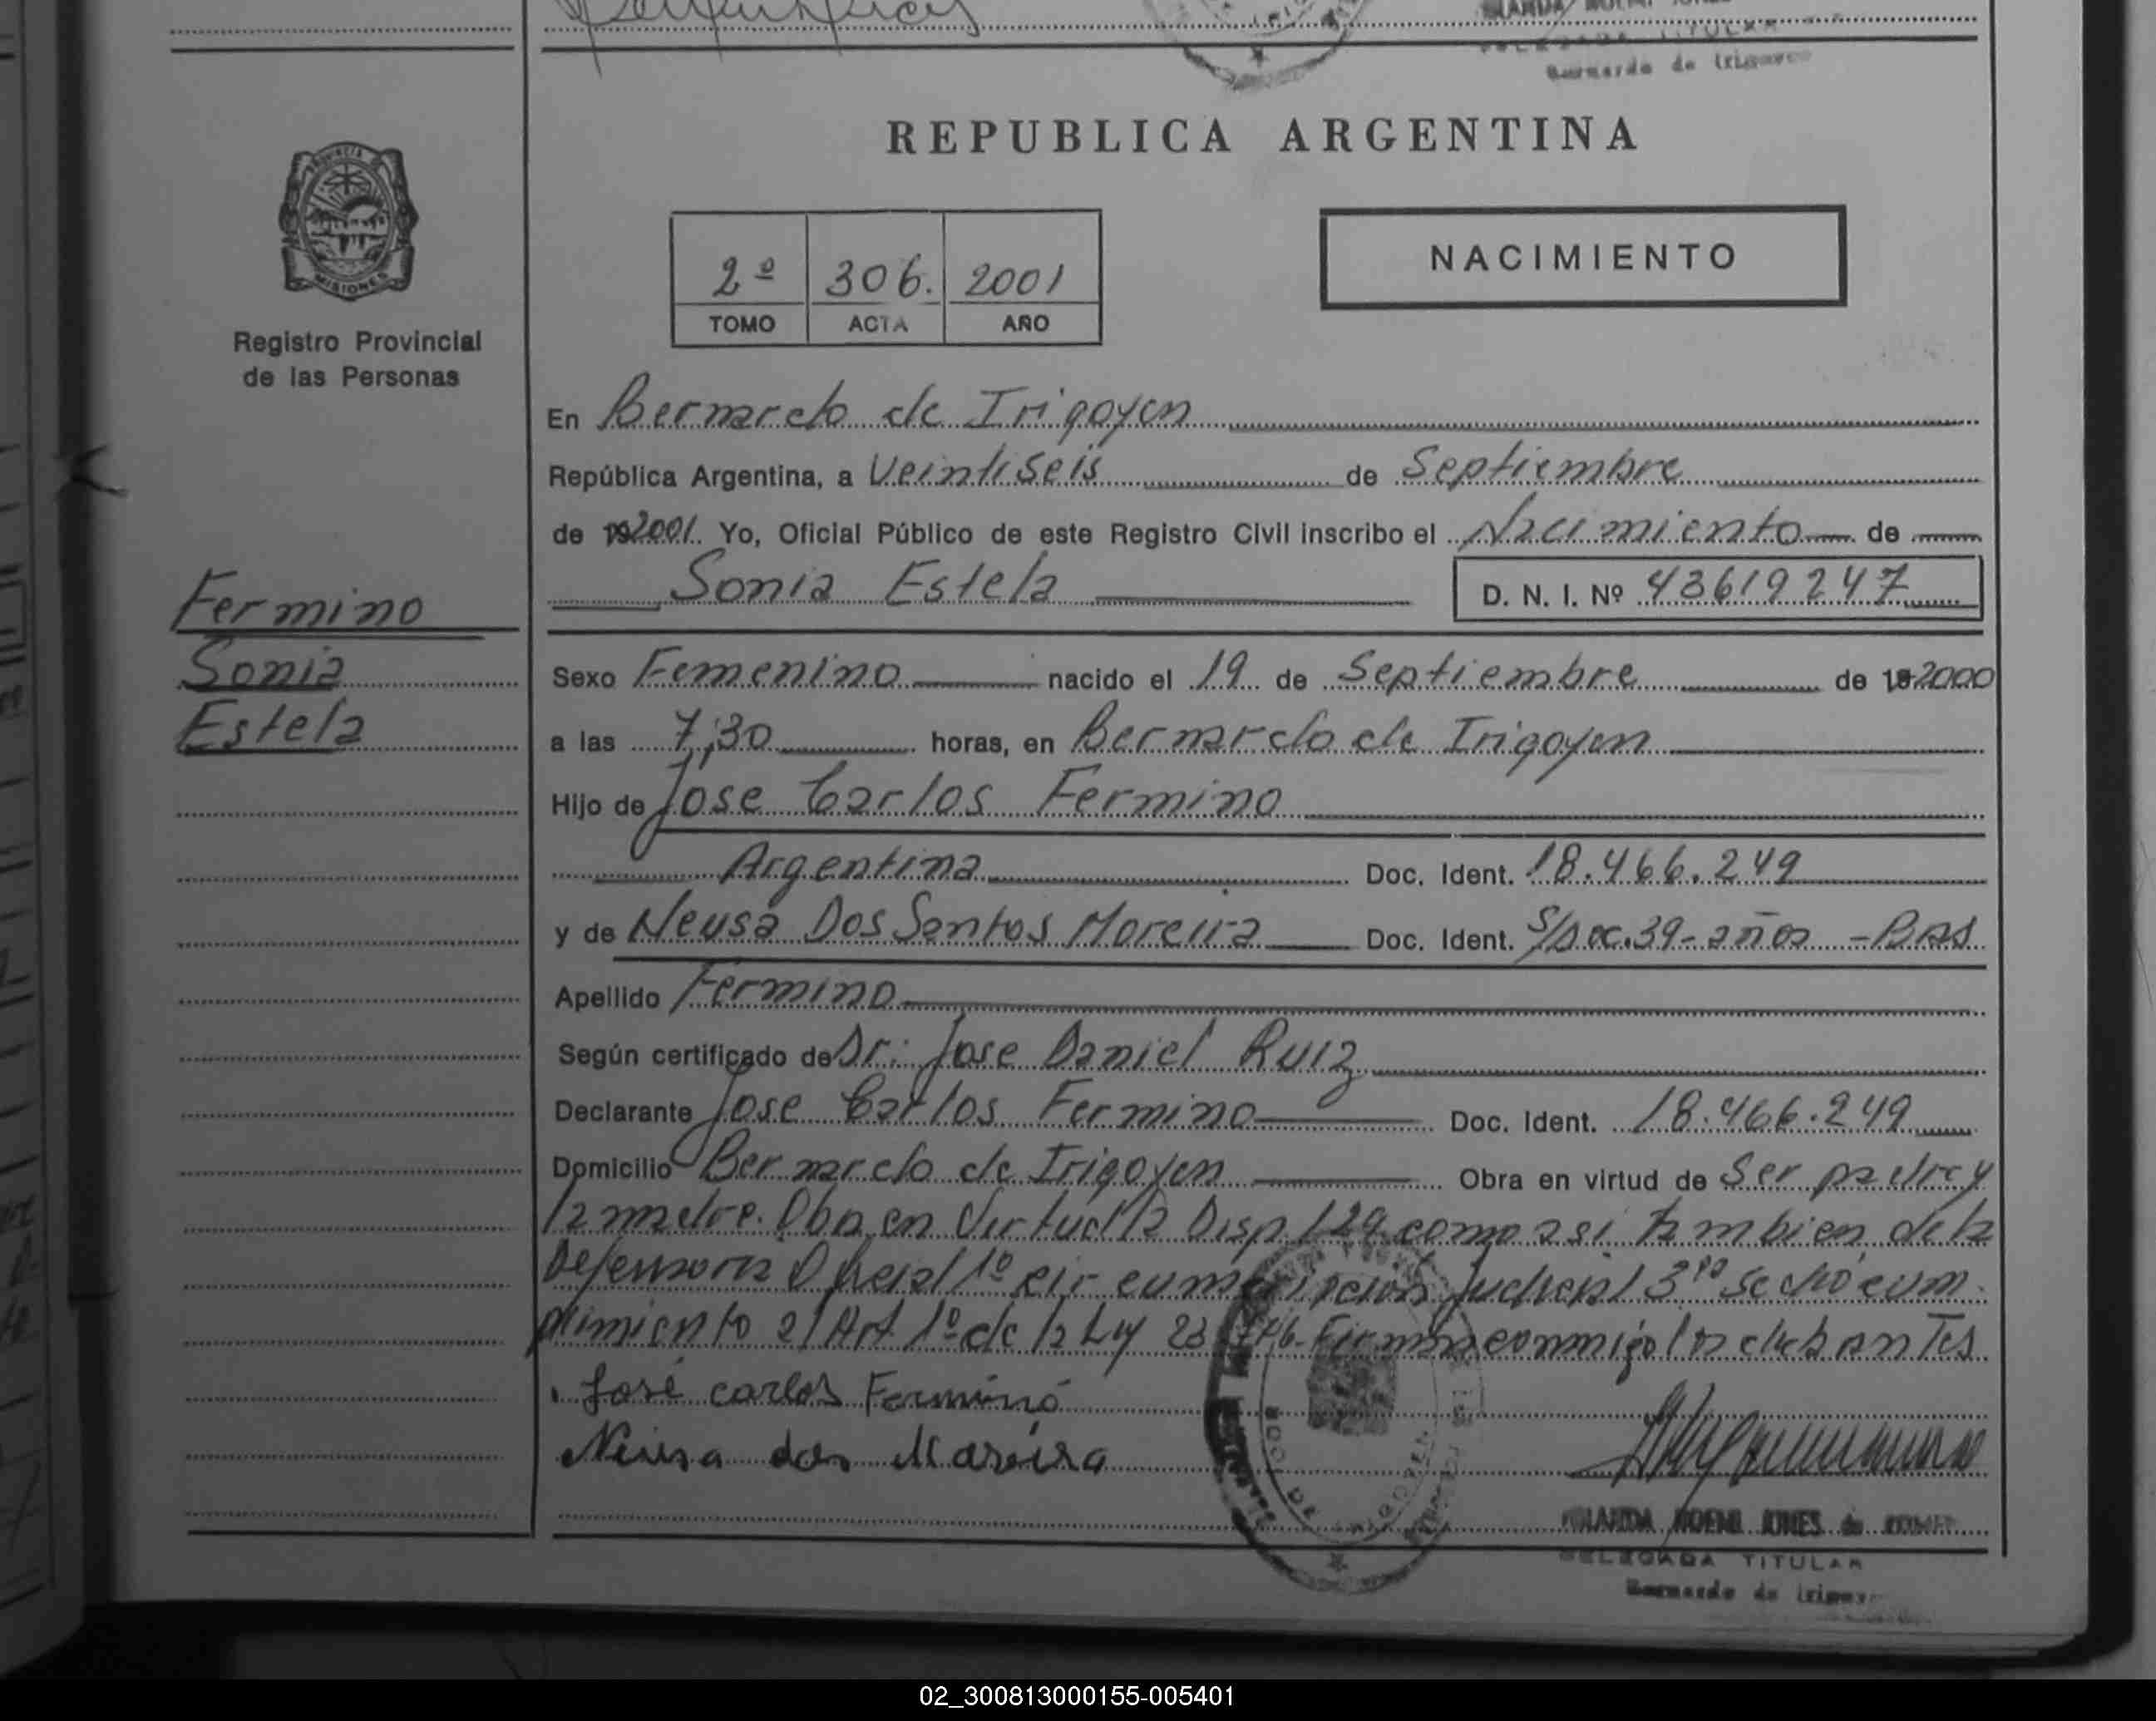 TITULAR
Bernardo de Irigoyen
REPUBLICA ARGENTINA
MISIONES
Registro Provincial
de las Personas
2º 306. 2001
TOMO ACTA AÑO
NACIMIENTO
En Bernardo de Irigoyen
República Argentina, a Veintiseis de Septiembre
de 19 2001. Yo, Oficial Público de este Registro Civil inscribo el Nacimiento de
Sonia Estela D. N. I. Nº 43619247
Fermino
Sonia
Estela
Sexo Femenino nacido el 19 de Septiembre de 19 2000
a las 7,30 horas, en Bernardo de Irigoyen
Hijo de Jose Carlos Fermino
Argentina Doc. Ident. 18.466.249
y de Neusa Dos Santos Moreira Doc. Ident. S/Doc. 39-años - Bras
Apellido Fermino
Según certificado de Dr: Jose Daniel Ruiz
Declarante Jose Carlos Fermino Doc. Ident. 18.466.249
Domicilio Bernardo de Irigoyen Obra en virtud de Ser padre y
la madre. Oba en Virtud la Disp 129 como asi tambien de la
Defensoria Oficial 1º Judicial 3ra Secho cum
plimiento al Art 1º de la Ley Firman conmigo los
José carlos Fermino
Neusa dos Moreira
NOEMI JONES de
DELEGADA TITULAR
Bernardo de Irigoyen
02_300813000155-005401